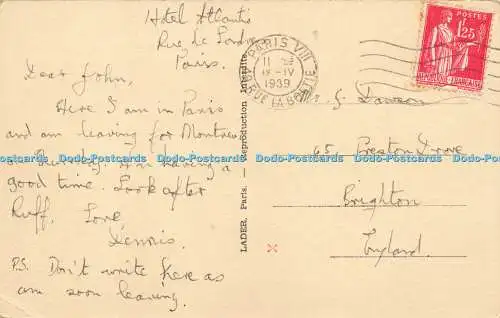 Hotel Atlantis
Rue de Londres
Paris.
Dear John,
Here I am in Paris
and am leaving for Montreux
on Thursday. Am having a
good time. Look after
Ruff. Love
Dennis.
P.S. Don't write here as
am soon leaving.
PARIS VIII
11
IX-IV
1939
RUE LA BOETIE
POSTES
1F25
REPUBLIQUE FRANÇAISE
LADER, Paris. — Reproduction Interdite
J. S. Dawson
65 Preston Drove
Brighton
England.
Dodo-Postcards Dodo-Postcards Dodo-Postcards Dodo-Postcards Dodo-Postcards Dodo-Postcards